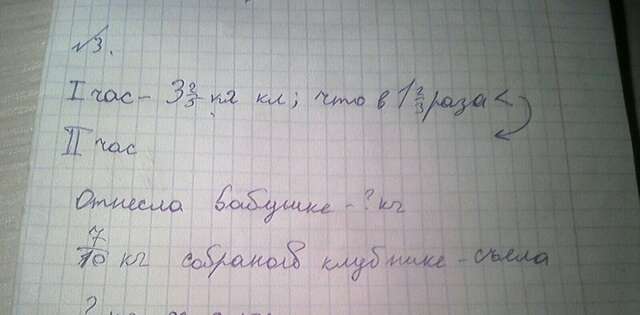 №3.
I час - 3 2/5 кг кл; что в 1 2/3 раза <
II час
Отнесла бабушке - ? кг
7/10 кг собраного клубнике - съела
?